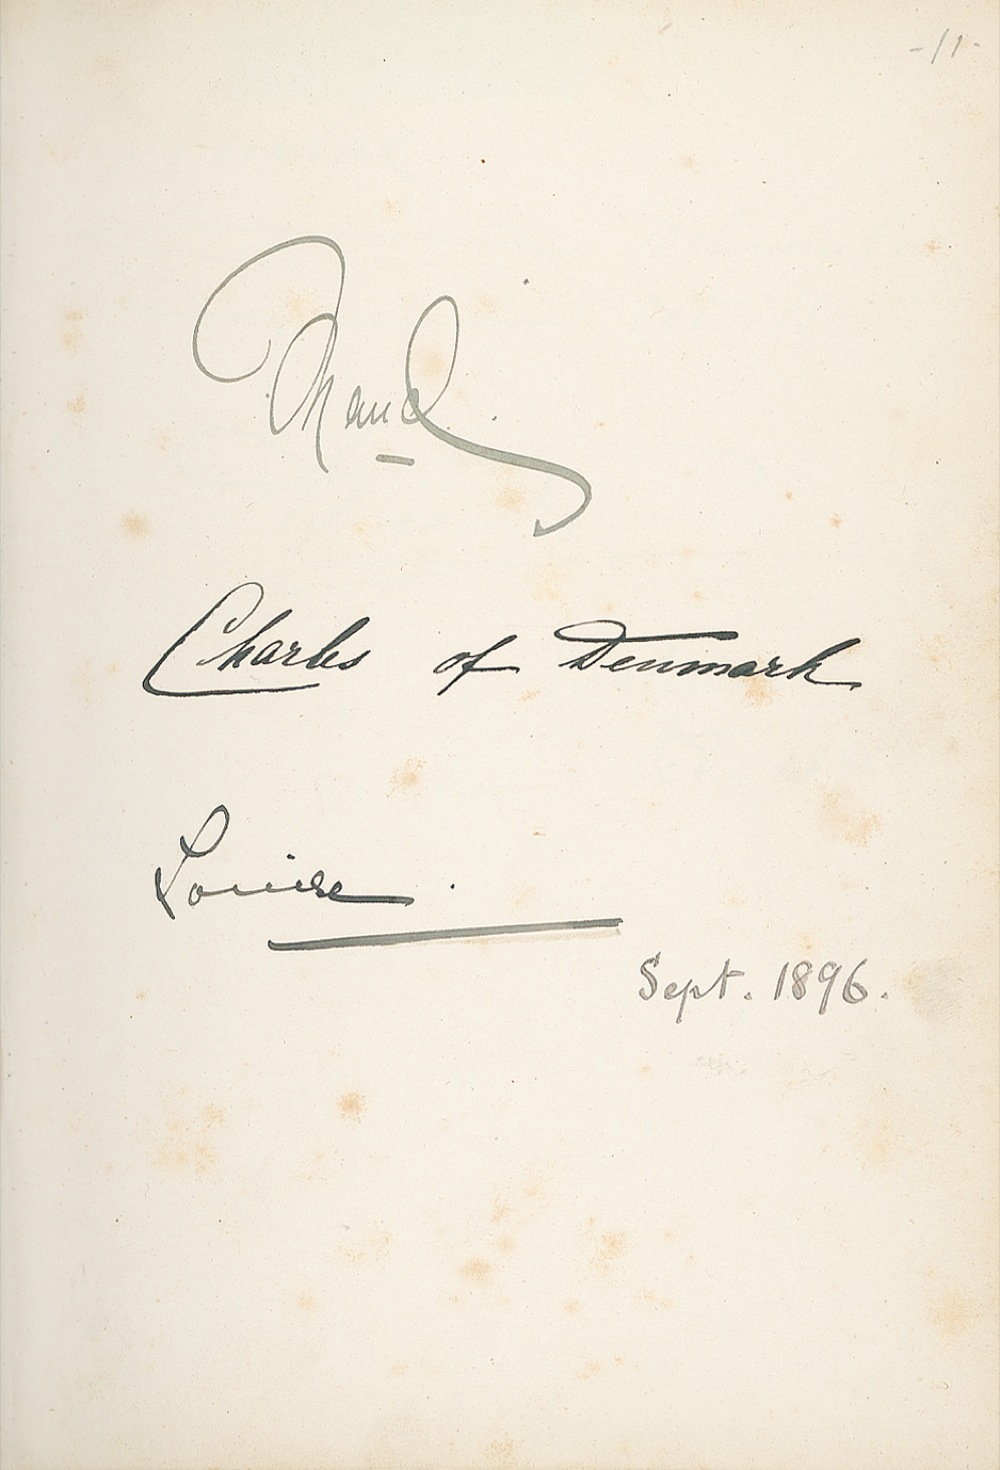 -11-
Maud.
Charles of Denmark
Louise.
Sept. 1896.